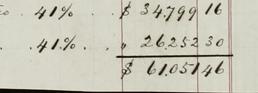 41% . . $ 34.799 16
. 41.% . . " 26.252 30
$ 61.051 46